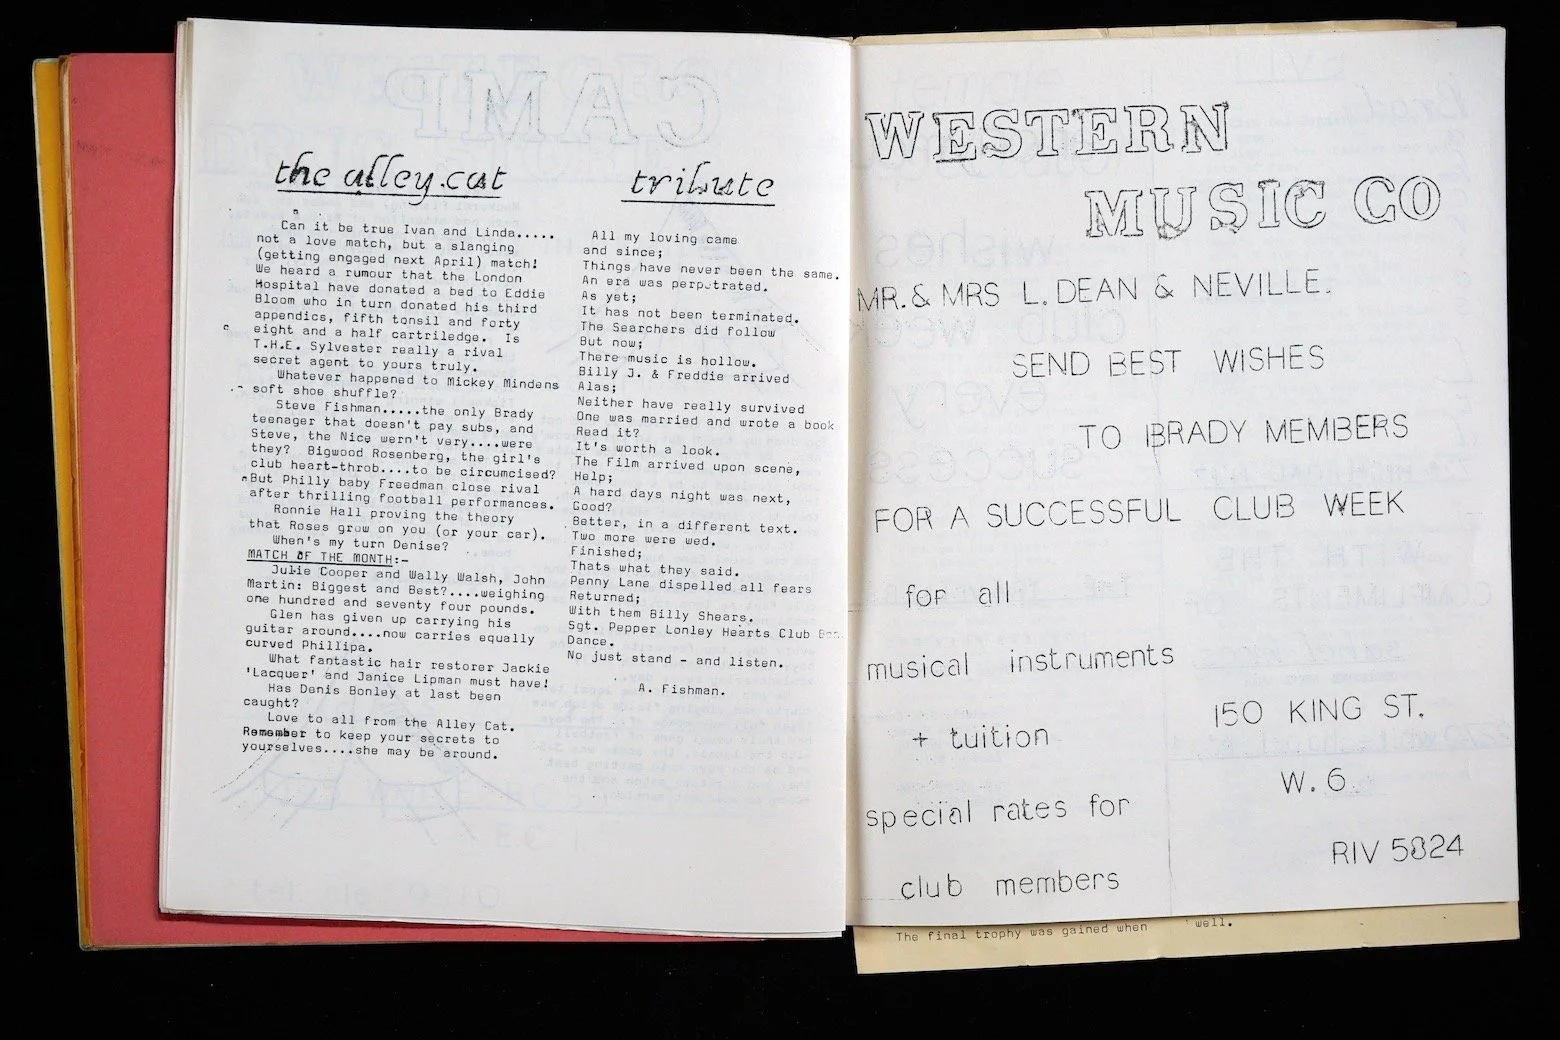 the alley cat
Can it be true Ivan and Linda.....
not a love match, but a slanging
(getting engaged next April) match!
We heard a rumour that the London
Hospital have donated a bed to Eddie
Bloom who in turn donated his third
appendics, fifth tonsil and forty
eight and a half cartriledge. Is
T.H.E. Sylvester really a rival
secret agent to yours truly.
Whatever happened to Mickey Mindens
soft shoe shuffle?
Steve Fishman.....the only Brady
teenager that doesn't pay subs, and
Steve, the Nice wern't very....were
they? Bigwood Rosenberg, the girl's
club heart-throb....to be circumcised?
But Philly baby Freedman close rival
after thrilling football performances.
Ronnie Hall proving the theory
that Roses grow on you (or your car).
When's my turn Denise?
MATCH OF THE MONTH:-
Julie Cooper and Wally Walsh, John
Martin: Biggest and Best?....weighing
one hundred and seventy four pounds.
Glen has given up carrying his
guitar around....now carries equally
curved Phillipa.
What fantastic hair restorer Jackie
'Lacquer' and Janice Lipman must have!
Has Denis Bonley at last been
caught?
Love to all from the Alley Cat.
Remember to keep your secrets to
yourselves....she may be around.
tribute
All my loving came
and since;
Things have never been the same.
An era was perpetrated.
As yet;
It has not been terminated.
The Searchers did follow
But now;
There music is hollow.
Billy J. & Freddie arrived
Alas;
Neither have really survived
One was married and wrote a book
Read it?
It's worth a look.
The Film arrived upon scene,
Help;
A hard days night was next,
Good?
Better, in a different text.
Two more were wed.
Finished;
Thats what they said.
Penny Lane dispelled all fears
Returned;
With them Billy Shears.
Sgt. Pepper Lonley Hearts Club
Dance.
No just stand - and listen.
A. Fishman.
WESTERN
MUSIC CO
MR. & MRS L. DEAN & NEVILLE.
SEND BEST WISHES
TO BRADY MEMBERS
FOR A SUCCESSFUL CLUB WEEK
for all
musical instruments
+ tuition
special rates for
club members
150 KING ST.
W. 6.
RIV 5824
The final trophy was gained when well.